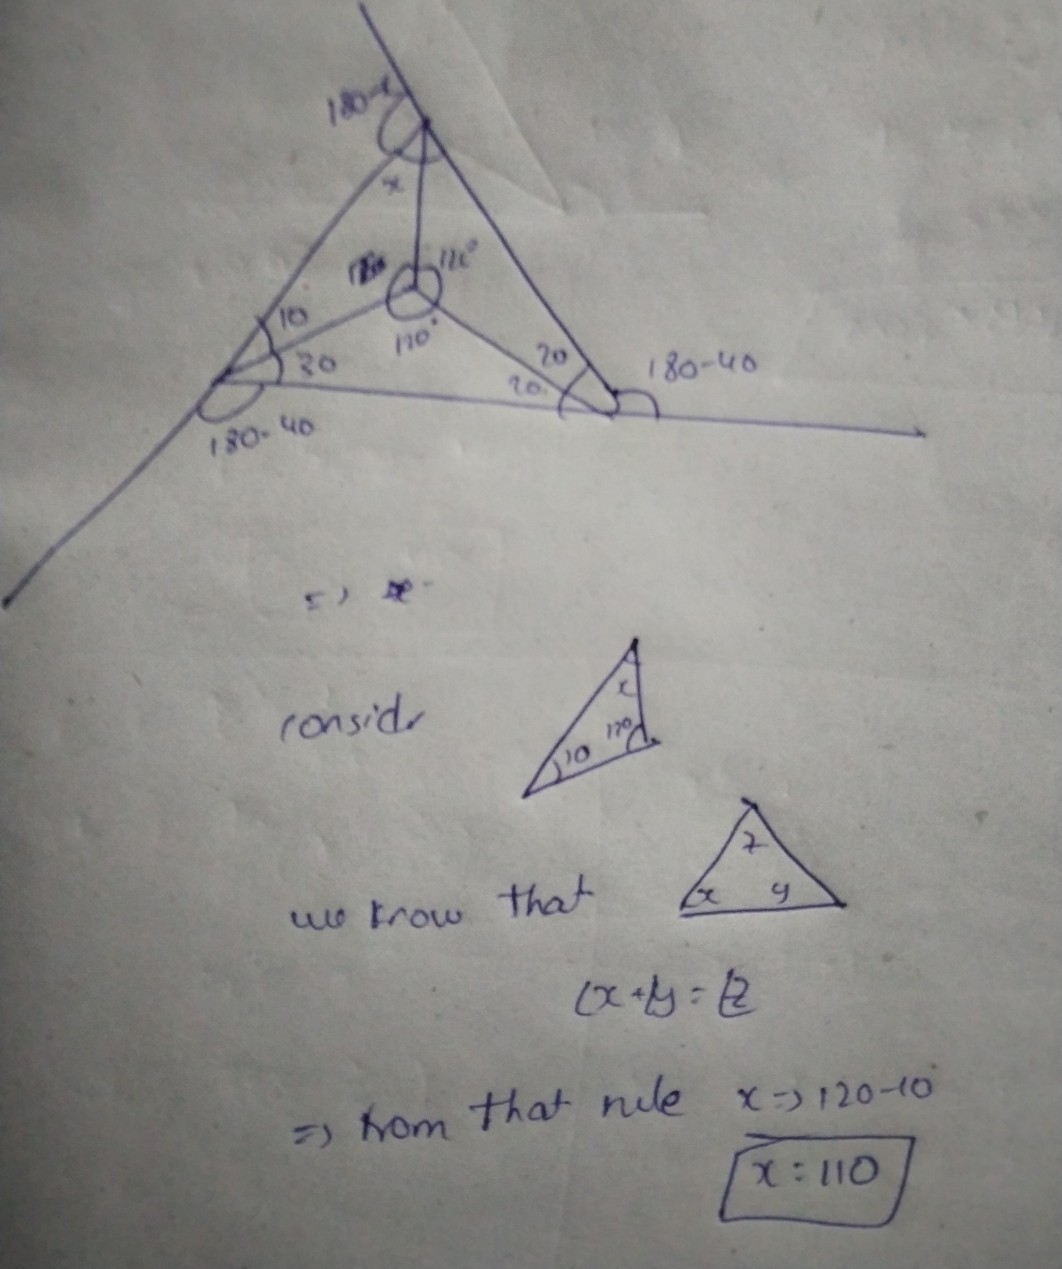 180-x
x
120°
10
30
120°
20
20
180-40
180-40
=>
consider
x
120
10
we know that
z
x y
∠x+∠y=∠z
=> from that rule x=>120-10
x=110